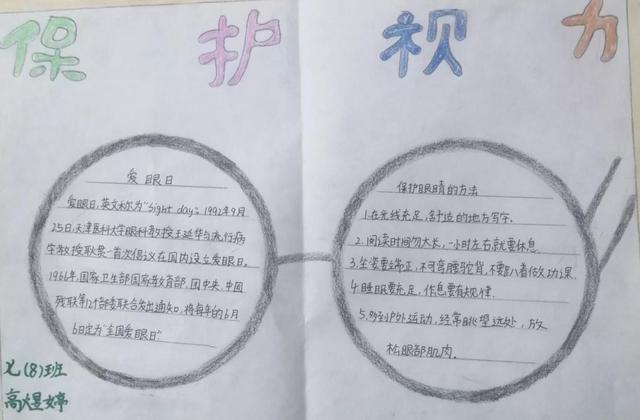 保护视力
爱眼日
爱眼日,英文称为"Sight day"。1992年9月
25日,天津医科大学眼科教授王延华与流行病
学教授耿贯一首次倡议在国内设立爱眼日。
1966年,国家卫生部国家教育部,团中央,中国
残联等12个部委联合发出通知,将每年的6月
6日定为"全国爱眼日".
保护眼睛的方法
1.在光线充足,舒适的地方写字.
2.阅读时间勿太长,一小时左右就要休息.
3.坐姿要端正,不可弯腰驼背,不要趴着做功课.
4.睡眠要充足,作息要有规律.
5.多到户外运动,经常眺望远处,放
松眼部肌肉.
七(8)班
高煜婷